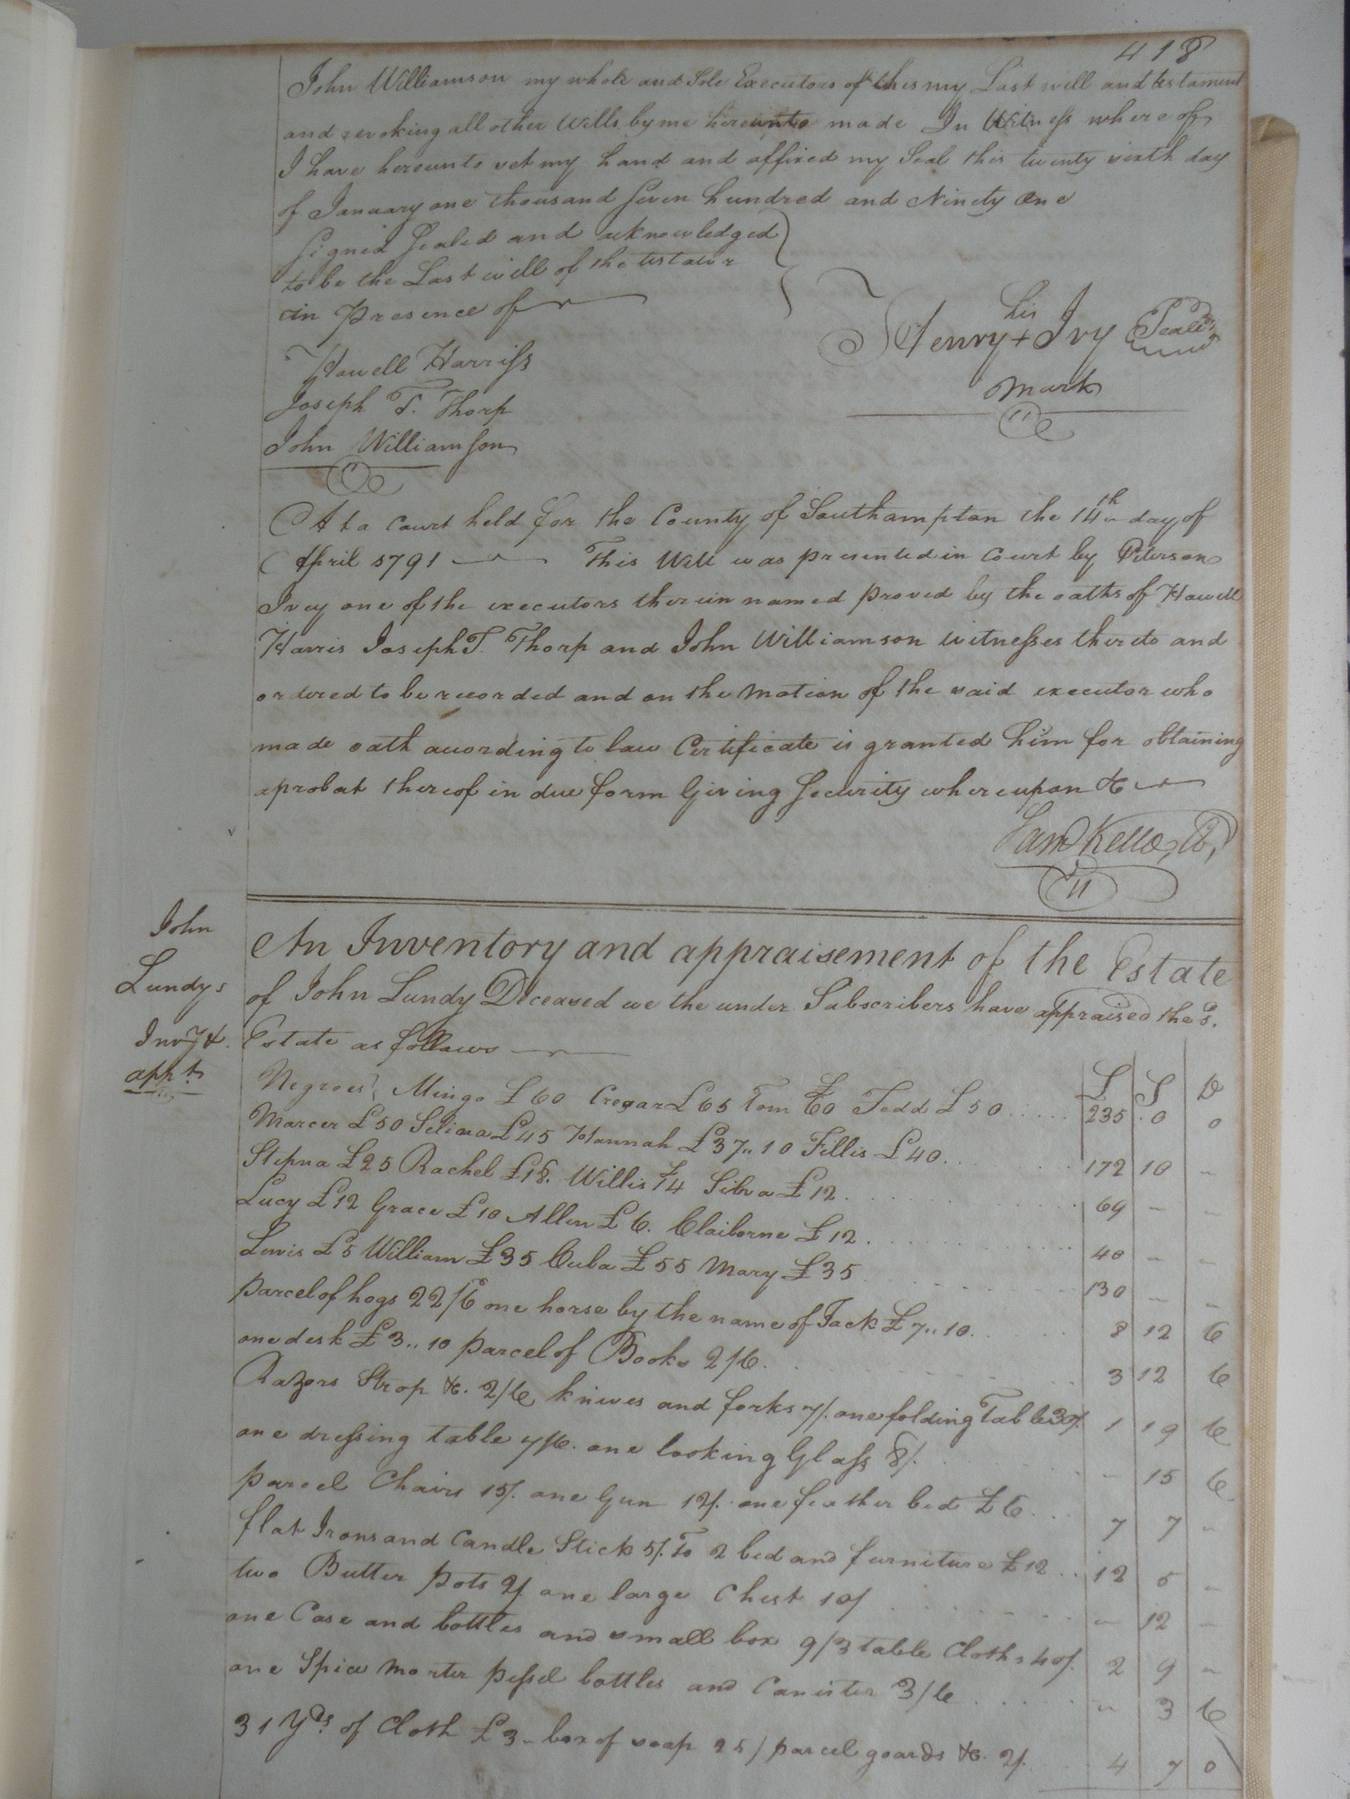 418
John Williamson my whole and Sole Executors of this my Last will and testament
and revoking all other Wills by me hereunto made In Witness where of
I have hereunto set my hand and affixed my Seal this twenty sixth day
of January one thousand Seven hundred and Ninety One
Signed Sealed and acknowledged
to be the Last will of the testator
in Presence of
his
Henry + Ivy Seal
mark
Howell Harriss
Joseph T. Thorp
John Williamson
At a Court held for the County of Southampton the 14th day of
April 1791 This Will was presented in Court by Peterson
Ivey one of the executors therein named proved by the oaths of Howell
Harris Joseph T. Thorp and John Williamson witnesses thereto and
ordered to be recorded and on the Motion of the said executor who
made oath according to law Certificate is granted him for obtaining
a probat thereof in due form Giving Security whereupon &c
Saml Kello, Cl,
John
Lundys
Invy &
appt
An Inventory and appraisement of the Estate
of John Lundy Deceased we the under Subscribers have appraised the sd.
Estate as follows
£ S D
Negroes, Mingo £60 Creqar £65 Tom £60 Tedd £50 235 0 0
Marcer £50 Selica £45 Hannah £37,,10 Fillis £40 172 10 -
Stepna £25 Rachel £18. Willis £14 Silva £12 69 - -
Lucy £12 Grace £10 Allen £6. Claiborne £12 40 - -
Lewis £5 William £35 Cuba £55 Mary £35 130 - -
Parcel of hogs 22/6 one horse by the name of Jack £7,,10. 8 12 6
one desk £3,,10 Parcel of Books 2/6. 3 12 6
Razors Strop &c. 2/6 knives and forks 7/. one folding Table 30/. 1 19 6
one dressing table 7/6. one looking Glass 8/. - 15 6
parcel Chairs 15/. one Gun 12/. one feather bed £6 7 7 -
flat Irons and Candle Stick 5/. To 2 bed and furniture £12 12 5 -
two Butter Pots 2/ one large Chest 10/ - 12 -
one Case and bottles and small box 9/ 3 table Cloths 40/. 2 9 -
one Spice Morter Pessel bottles and Canister 3/6 - 3 6
31 Yds of Cloth £3 - box of soap 25/ parcel goards &c. 2/. 4 7 0